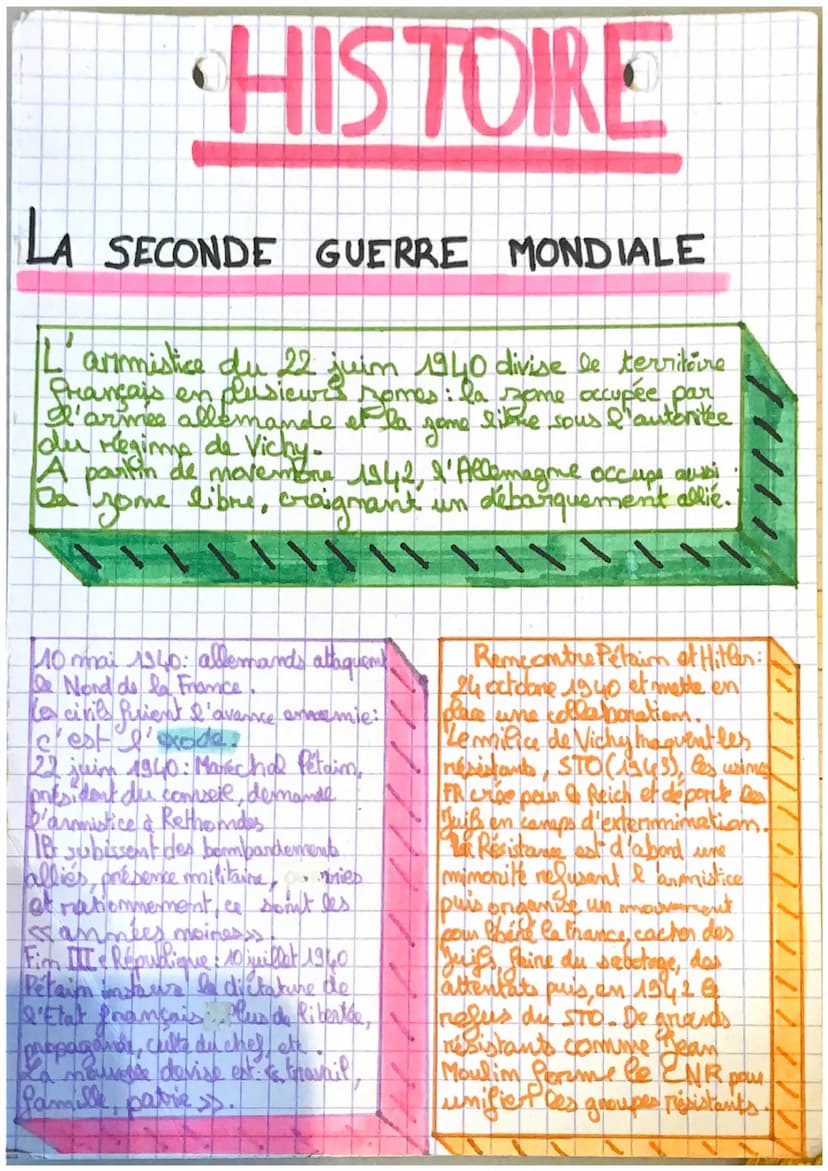 HISTOIRE
LA SECONDE GUERRE MONDIALE
L'armistice du 22 juin 1940 divise le territoire
français en plusieurs zones : la zone occupée par
l'armée allemande et la zone libre sous l'autoritée
du Régime de Vichy.
A partir de novembre 1942, l'Allemagne occupe aussi
la zone libre, craignant un débarquement allié.
10 mai 1940: allemands attaquent
le Nord de la France.
Les civils fuient l'avance ennemie:
c'est l'exode.
22 juin 1940: Maréchal Pétain,
président du conseil, demande
l'armistice à Rethondes
subissent des bombardements
alliés, présence militaire,
et rationnement, ce sont les
<< années noires>>.
Fin III e République : 10 juillet 1940
Pétain instaure la dictature de
l'Etat français. Plus de libertée,
propagande, culte du chef, etc.
La nouvelle devise est: << travail,
famille, patrie >>.
Rencontre Pétain et Hitler:
24 octobre 1940 et mette en
place une collaboration.
Le milice de Vichy traquent les
résistants, STO(1943), les usines
FR crée pour le Reich et déporte les
Juifs en camps d'extermination.
La Résistance est d'abord une
minorité refusant l'armistice
puis organise un mouvement
pour libéré la France, cacher des
juifs, faire du sabotage, des
attentats puis, en 1942 le
refus du STO. De grands
résistants comme Jean
Moulin forme le CNR pour
unifier les groupes résistants.